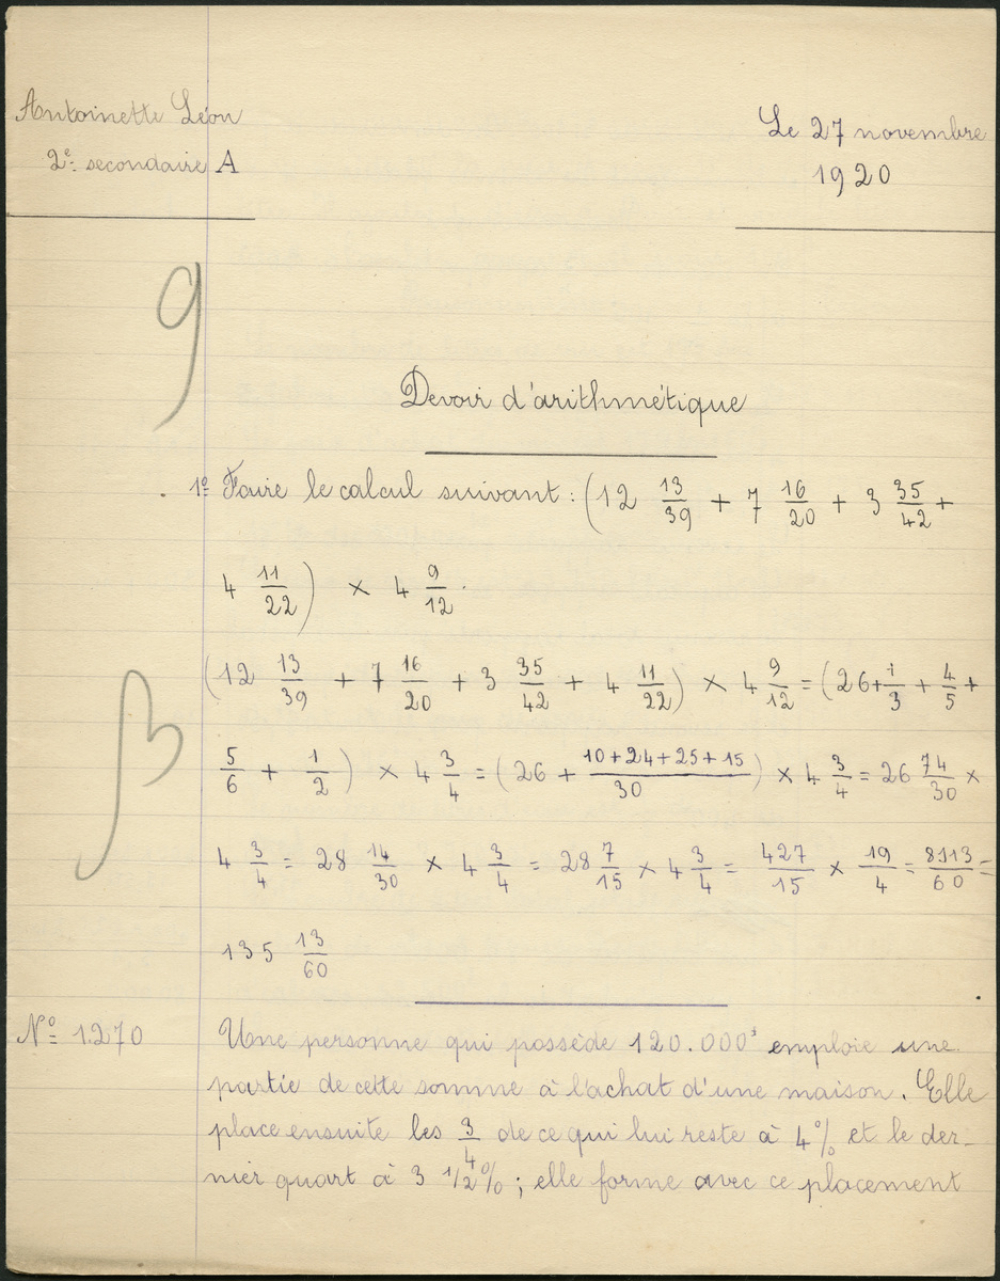 Antoinette Léon
Le 27 novembre
2e: secondaire A
1920
9
Devoir d'arithmétique
1º Faire le calcul suivant : (12 13/39 + 7 16/20 + 3 35/42 +
4 11/22) × 4 9/12.
(12 13/39 + 7 16/20 + 3 35/42 + 4 11/22) × 4 9/12 = (26 + 1/3 + 4/5 +
5/6 + 1/2) × 4 3/4 = (26 + (10+24+25+15)/30) × 4 3/4 = 26 74/30 ×
4 3/4 = 28 14/30 × 4 3/4 = 28 7/15 × 4 3/4 = 427/15 × 19/4 = 8113/60 =
135 13/60
Nº 1270 Une personne qui possède 120.000f emploie une
partie de cette somme à l'achat d'une maison. Elle
place ensuite les 3/4 de ce qui lui reste à 4% et le der-
nier quart à 3 1/2 % ; elle forme avec ce placement